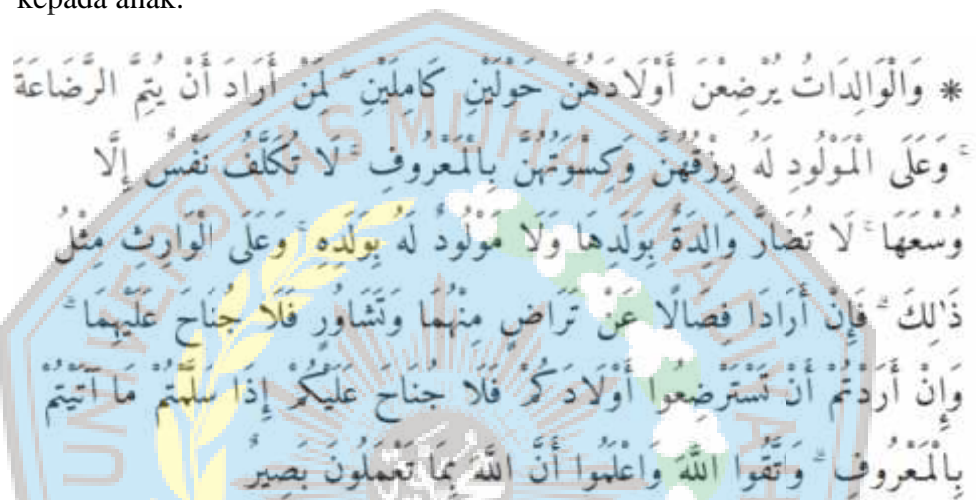 kepada anak.
* وَالْوَالِدَاتُ يُرْضِعْنَ أَوْلَادَهُنَّ حَوْلَيْنِ كَامِلَيْنِ ۖ لِمَنْ أَرَادَ أَنْ يُتِمَّ الرَّضَاعَةَ
ۚ وَعَلَى الْمَوْلُودِ لَهُ رِزْقُهُنَّ وَكِسْوَتُهُنَّ بِالْمَعْرُوفِ ۚ لَا تُكَلَّفُ نَفْسٌ إِلَّا
وُسْعَهَا ۚ لَا تُضَارَّ وَالِدَةٌ بِوَلَدِهَا وَلَا مَوْلُودٌ لَهُ بِوَلَدِهِ ۚ وَعَلَى الْوَارِثِ مِثْلُ
ذَٰلِكَ ۗ فَإِنْ أَرَادَا فِصَالًا عَنْ تَرَاضٍ مِنْهُمَا وَتَشَاوُرٍ فَلَا جُنَاحَ عَلَيْهِمَا ۗ
وَإِنْ أَرَدْتُمْ أَنْ تَسْتَرْضِعُوا أَوْلَادَكُمْ فَلَا جُنَاحَ عَلَيْكُمْ إِذَا سَلَّمْتُمْ مَا آتَيْتُمْ
بِالْمَعْرُوفِ ۗ وَاتَّقُوا اللَّهَ وَاعْلَمُوا أَنَّ اللَّهَ بِمَا تَعْمَلُونَ بَصِيرٌ
UNIVERSITAS MUHAMMADIYAH